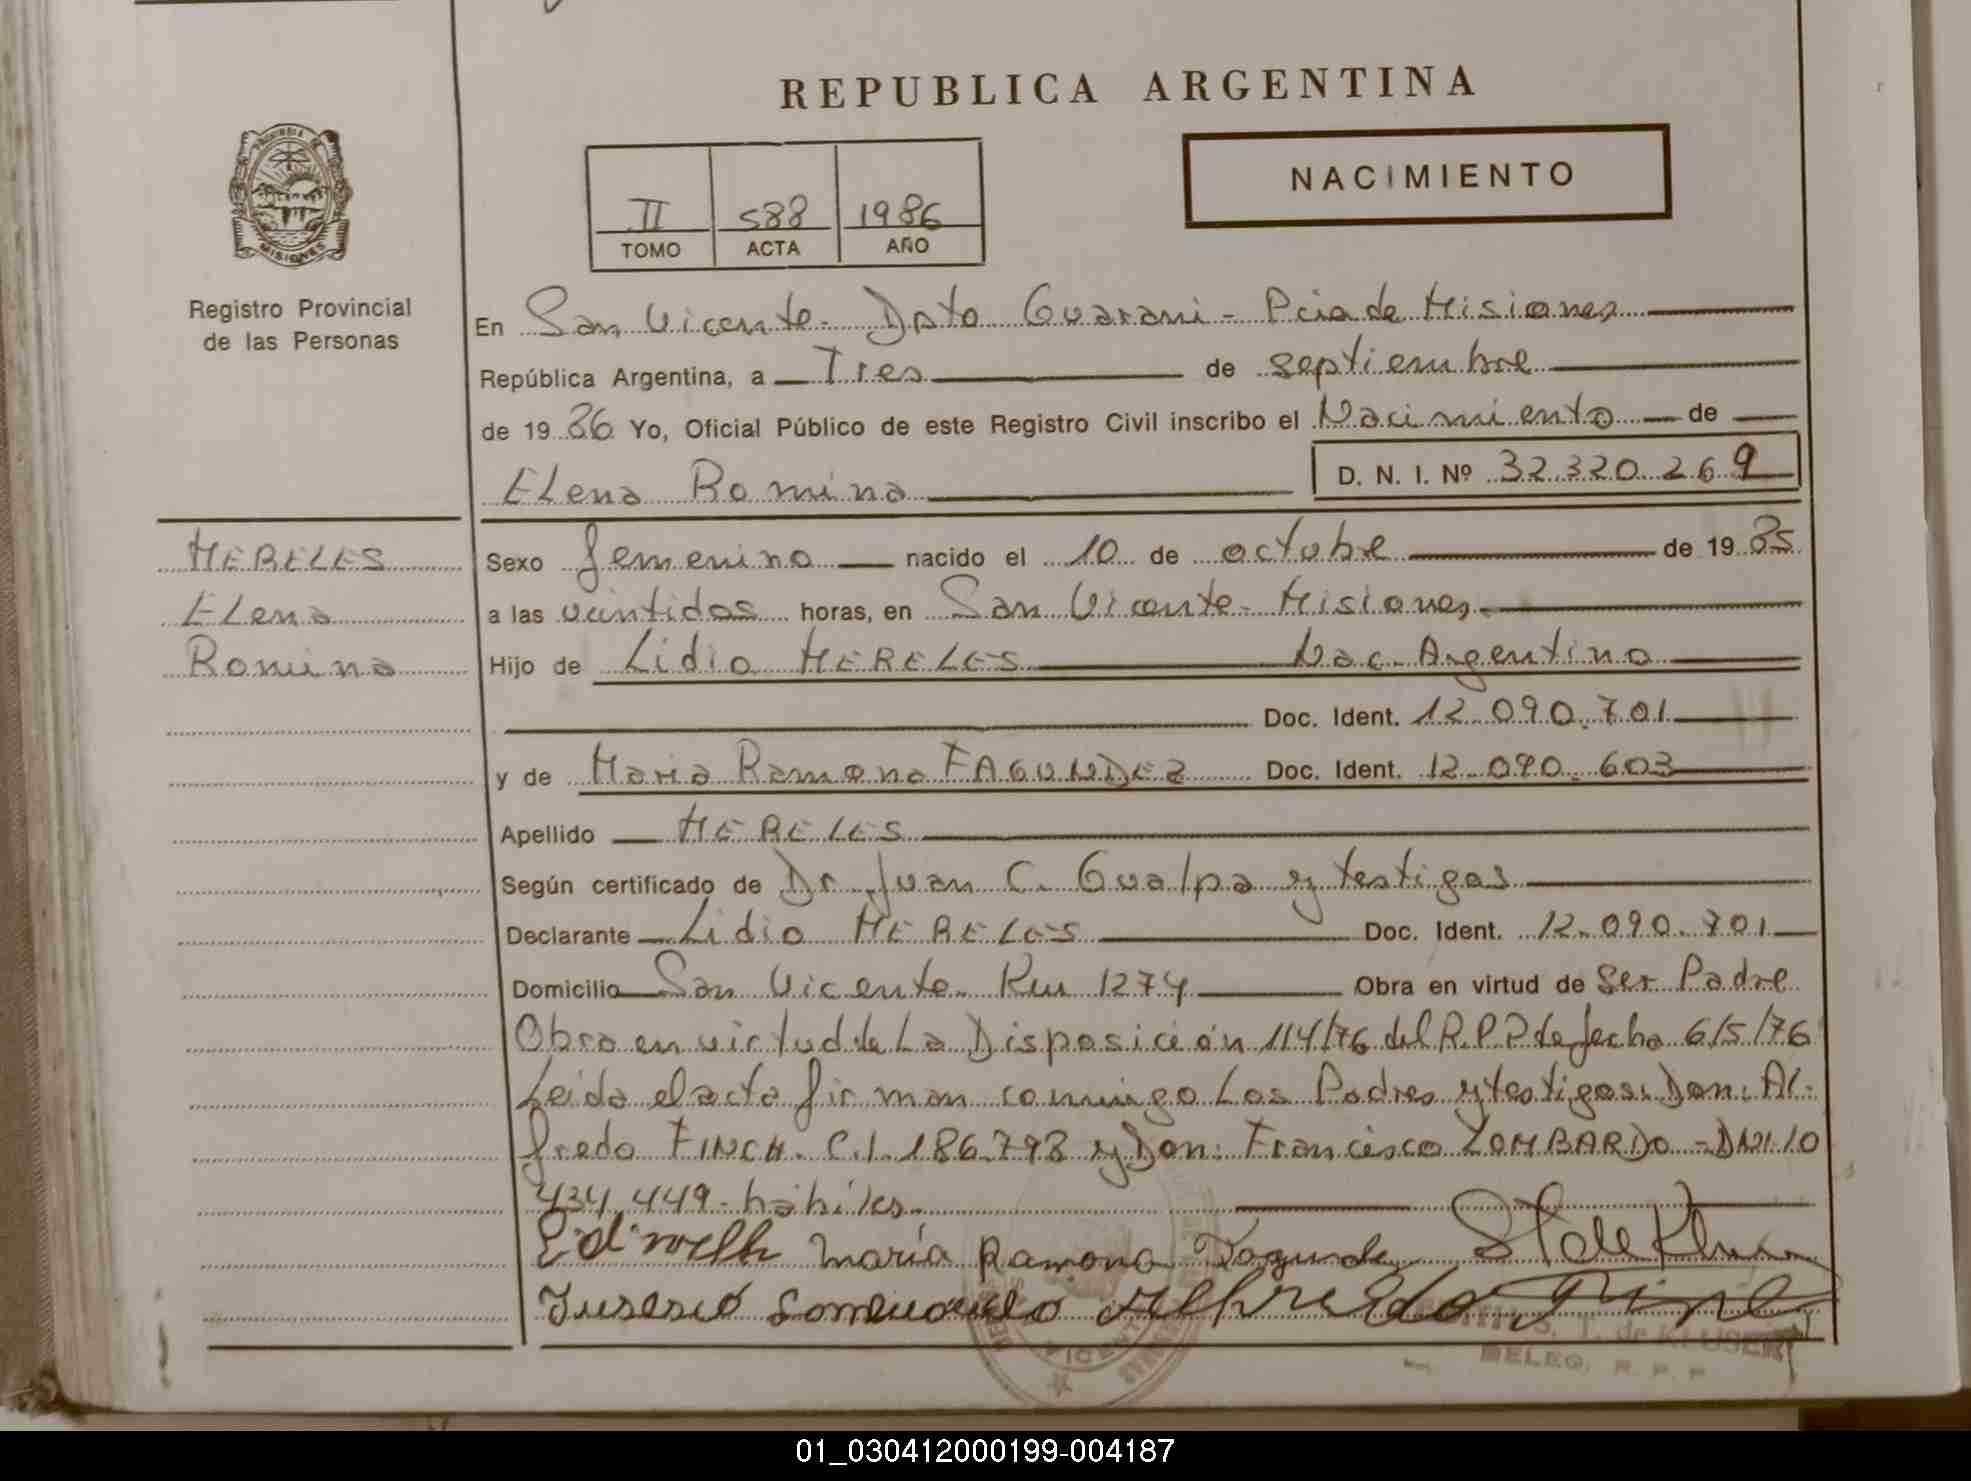 REPUBLICA ARGENTINA
PROVINCIA DE
MISIONES
Registro Provincial
de las Personas
II 588 1986
TOMO ACTA AÑO
NACIMIENTO
En San Vicente - Dpto Guarani - Pcia de Misiones
República Argentina, a Tres de septiembre
de 1986 Yo, Oficial Público de este Registro Civil inscribo el Nacimiento de
Elena Romina D. N. I. Nº 32.320.269
MERELES
Elena
Romina
Sexo femenino nacido el 10 de octubre de 1985
a las veintidos horas, en San Vicente - Misiones
Hijo de Lidio MERELES Nac. Argentino
Doc. Ident. 12.090.701
y de Maria Ramona FAGUNDEZ Doc. Ident. 12.090.603
Apellido MERELES
Según certificado de Dr. Juan C. Gualpa y testigos
Declarante Lidio MERELES Doc. Ident. 12.090.701
Domicilio San Vicente Km 1274 Obra en virtud de Ser Padre
Obra en virtud de La Disposición 114/76 del R.P.P de fecha 6/5/76
Leida el acta firman conmigo Los Padres y testigos: Don: Al-
fredo FINCH. C.I. 186.798 y Don: Francisco LOMBARDO - DNI 10
434.449 - hábiles
María Ramona Fagunde
de KLUSENER
DELEG. R. P. P.
01_030412000199-004187